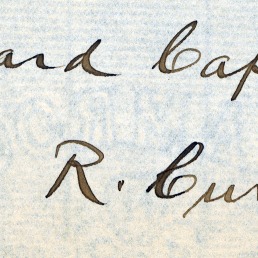 ard Cap
R. Cur